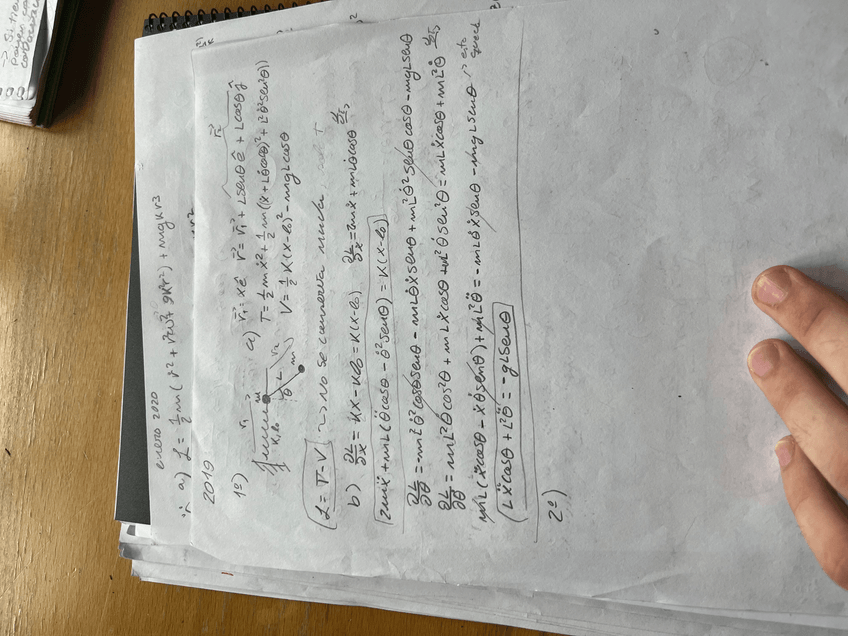 → Si tien
enero 2020
a) L = ½ m (ṙ² + r²ω² + 9k²r⁴) + mgkr³
2019
1º)
a) r⃗₁ = x ê   r⃗ = r⃗₁ + L senθ ê + L cosθ ĵ
r⃗₂
T = ½ m ẋ² + ½ m ((ẋ + Lθ̇ cosθ)² + L²θ̇² sen²θ))
V = ½ K (x - l₀)² - mgL cosθ
r₁
m
K, l₀
θ
L
r₂
m
L = T - V → No se cancela mucha
b) ∂L/∂x = Kx - Kl₀ = K(x - l₀)   ∂L/∂ẋ = 2mẋ + mLθ̇ cosθ   d/dt →
2mẍ + mL(θ̈ cosθ - θ̇² senθ) = K(x - l₀)
∂L/∂θ = -mL²θ̇² cosθ senθ - mLθ̇ẋ senθ + mL²θ̇² senθ cosθ - mgL senθ
∂L/∂θ̇ = mL²θ̇ cos²θ + mLẋ cosθ + mL²θ̇ sen²θ = mLẋ cosθ + mL²θ̇   d/dt →
mL(ẍ cosθ - ẋθ̇ senθ) + mL²θ̈ = -mLθ̇ẋ senθ - mgL senθ → esto queda
Lẍ cosθ + L²θ̈ = -gL senθ
2º)